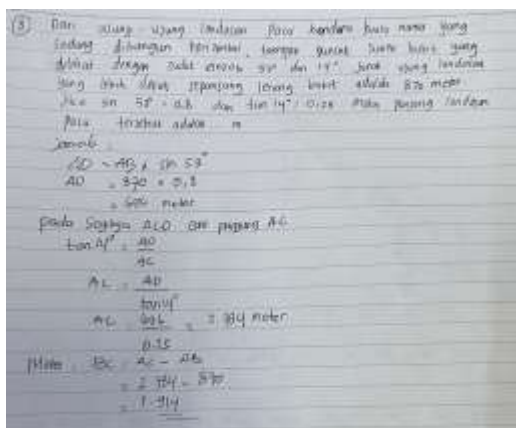 (3) Dari ujung - ujung landasan pacu bandara yang
sedang dibangun puncak suatu bukit yang
dilihat dengan sudut 53° dan 14°. Jarak ujung landasan
yang lebih dekat sepanjang lereng bukit adalah 870 meter.
Jika sin 53° = 0.8 dan tan 14° = 0.25 maka panjang landasan
pacu tersebut adalah m
Jawab :
AD = AB x sin 53°
AD = 870 x 0,8
= 696 meter
pada Segitiga ACD AC
tan 14° = AD
AC
AC = AD
tan 14°
AC = 696 = 2 784 meter
0.25
Maka BC = AC - AB
= 2 784 - 870
= 1.914